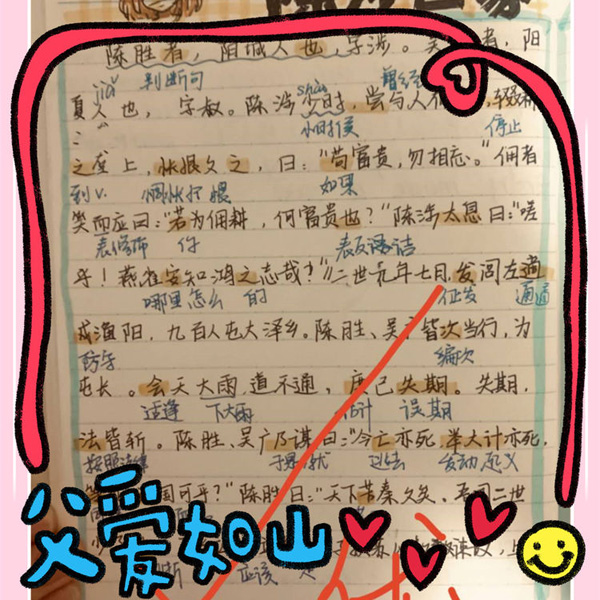 陈胜者，阳城人也，字涉。吴 者，阳
jiǎ 判断句 曾经
夏人也，字叔。陈涉少时，尝与人佣 ，辍耕
shào
小时候 停止
之垄上，怅恨久之，曰：“苟富贵，勿相忘。”佣者
到v. 惆怅 如果
笑而应曰：“若为佣耕，何富贵也？”陈涉太息曰：“嗟
表修饰 你 表反诘
乎！燕雀安知鸿之志哉？”二世元年七月，发闾左適
哪里怎么 的 征发 通谪
戍渔阳，九百人屯大泽乡。陈胜、吴广皆次当行，为
防守 编次
屯长。会天大雨，道不通，度已失期。失期，
适逢 下大雨 估计 误期
法皆斩。陈胜、吴广乃谋曰：“今亡亦死，举大计亦死，
按照法律 于是 就 逃亡 发动 起义
国可乎？”陈胜曰：“天下苦秦久矣，吾闻二世
少
应该 是
父爱如山